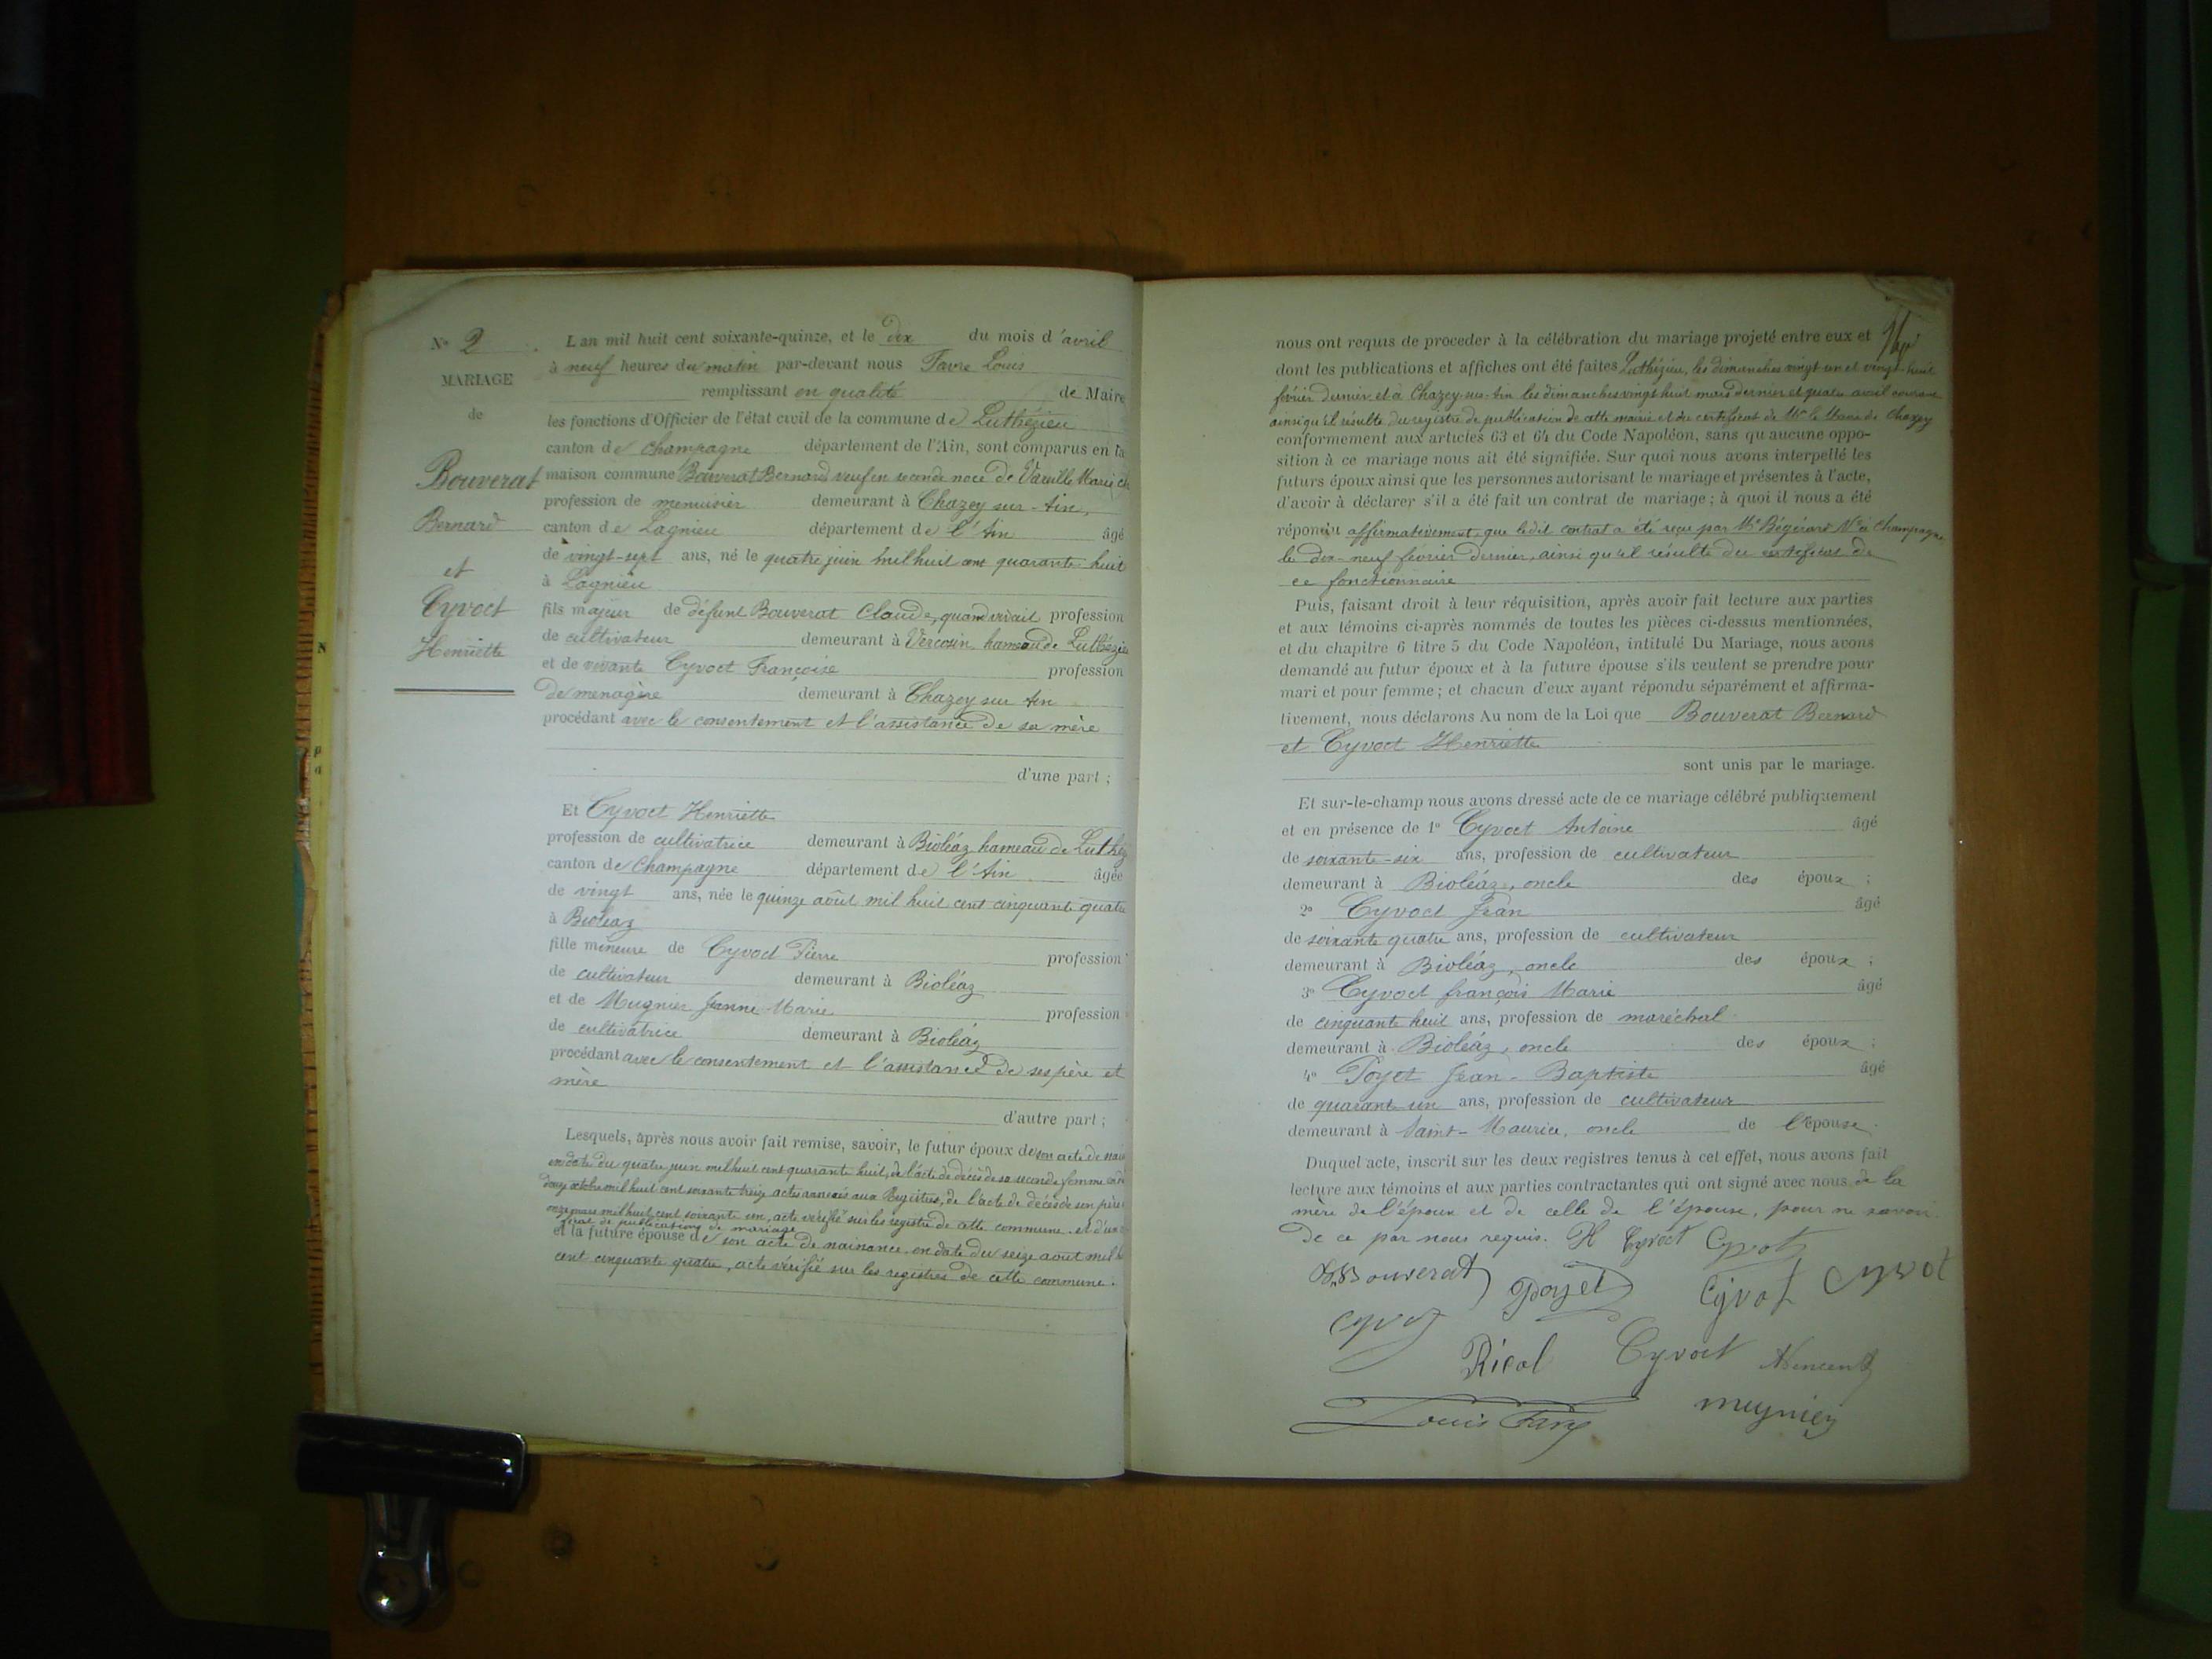 N° 2
MARIAGE
de
Bouverat
Bernard
et
Cyvoct
Henriette
L'an mil huit cent soixante-quinze, et le dix du mois d'avril
à neuf heures du matin par-devant nous Favre Louis
remplissant en qualité de Maire
les fonctions d'Officier de l'état civil de la commune de Luthézieu
canton de Champagne département de l'Ain, sont comparus en la
maison commune Bouverat Bernard veuf en seconde noce de Marie
profession de menuisier demeurant à Chazey sur-Ain,
canton de Lagnieu département de l'Ain âgé
de vingt-sept ans, né le quatre juin mil huit cent quarante huit
à Lagnieu
fils majeur de défunt Bouverat Claude, quand vivait profession
de cultivateur demeurant à Vercosin, hameau de Luthézie
et de vivante Cyvoct Françoise profession
de menagère demeurant à Chazey sur Ain
procédant avec le consentement et l'assistance de sa mère
d'une part ;
Et Cyvoct Henriette
profession de cultivatrice demeurant à Bioléaz hameau de Luthéz
canton de Champagne département de l'Ain âgée
de vingt ans, née le quinze août mil huit cent cinquante quatre
à Bioléaz
fille mineure de Cyvoct Pierre profession
de cultivateur demeurant à Bioléaz
et de Mugnier Jeanne Marie profession
de cultivatrice demeurant à Bioléaz
procédant avec le consentement et l'assistance de ses père et
mère
d'autre part ;
Lesquels, après nous avoir fait remise, savoir, le futur époux de son acte de nais
en date du quatre juin mil huit cent quarante huit, de l'acte de décès de sa seconde femme en
douze octobre mil huit cent soixante treize actes annexés aux Registres, de l'acte de décès de son père
onze mars mil huit cent soixante un, acte vérifié sur les registre de cette commune, et d'un
ficat de publications de mariage
et la future épouse de son acte de naissance en date du seize août mil h
cent cinquante quatre, acte vérifié sur les registres de cette commune.
nous ont requis de proceder à la célébration du mariage projeté entre eux et
dont les publications et affiches ont été faites Luthézieu, les dimanches vingt-un et vingt-huit
février dernier et à Chazey-sur-Ain les dimanches vingt huit mars dernier et quatre avril courant
ainsi qu'il résulte du registre de publication de cette mairie et du certificat de Mr le Maire de Chazey
conformement aux articles 63 et 64 du Code Napoléon, sans qu'aucune oppo-
sition à ce mariage nous ait été signifiée. Sur quoi nous avons interpellé les
futurs époux ainsi que les personnes autorisant le mariage et présentes à l'acte,
d'avoir à déclarer s'il a été fait un contrat de mariage ; à quoi il nous a été
répondu affirmativement, que le dit contrat a été reçu par Me Bégérard Nre à Champagne
le dix-neuf février dernier, ainsi qu'il résulte du certificat de
ce fonctionnaire
Puis, faisant droit à leur réquisition, après avoir fait lecture aux parties
et aux témoins ci-après nommés de toutes les pièces ci-dessus mentionnées,
et du chapitre 6 titre 5 du Code Napoléon, intitulé Du Mariage, nous avons
demandé au futur époux et à la future épouse s'ils veulent se prendre pour
mari et pour femme ; et chacun d'eux ayant répondu séparément et affirma-
tivement, nous déclarons Au nom de la Loi que Bouverat Bernard
et Cyvoct Henriette
sont unis par le mariage.
Et sur-le-champ nous avons dressé acte de ce mariage célébré publiquement
et en présence de 1° Cyvoct Antoine âgé
de soixante-six ans, profession de cultivateur
demeurant à Bioléaz, oncle des époux ;
2° Cyvoct Jean âgé
de soixante quatre ans, profession de cultivateur
demeurant à Bioléaz, oncle des époux ;
3° Cyvoct françois Marie âgé
de cinquante huit ans, profession de maréchal
demeurant à Bioléaz, oncle des époux ;
4° Poyet Jean-Baptiste âgé
de quarante un ans, profession de cultivateur
demeurant à Saint-Maurice, oncle de l'épouse.
Duquel acte, inscrit sur les deux registres tenus à cet effet, nous avons fait
lecture aux témoins et aux parties contractantes qui ont signé avec nous, de la
mère de l'époux et de celle de l'épouse, pour ne savoir.
De ce par nous requis. H Cyvoct Cyvot
Bouverat Poyet Cyvot Cyvot
Cyvot
Ricol Cyvoct Vincent
Louis Favre mugnier